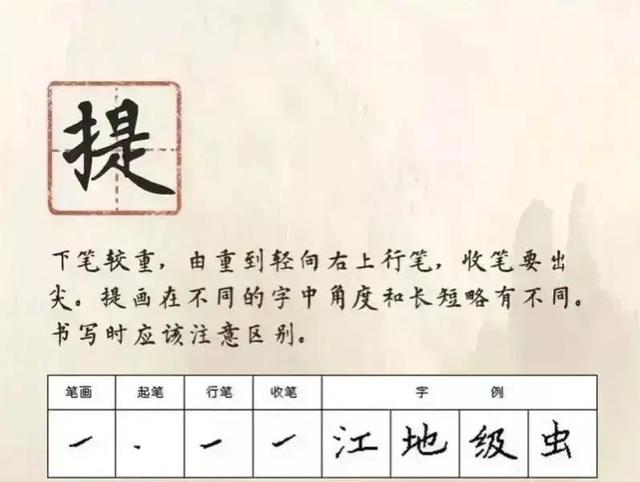 提
下笔较重，由重到轻向右上行笔，收笔要出
尖。提画在不同的字中角度和长短略有不同。
书写时应该注意区别。
笔画 起笔 行笔 收笔 字 例
江 地 级 虫